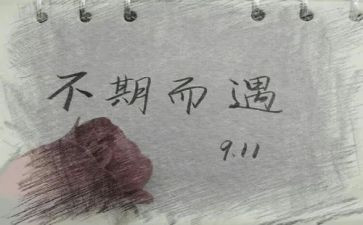 不期而遇
9.11